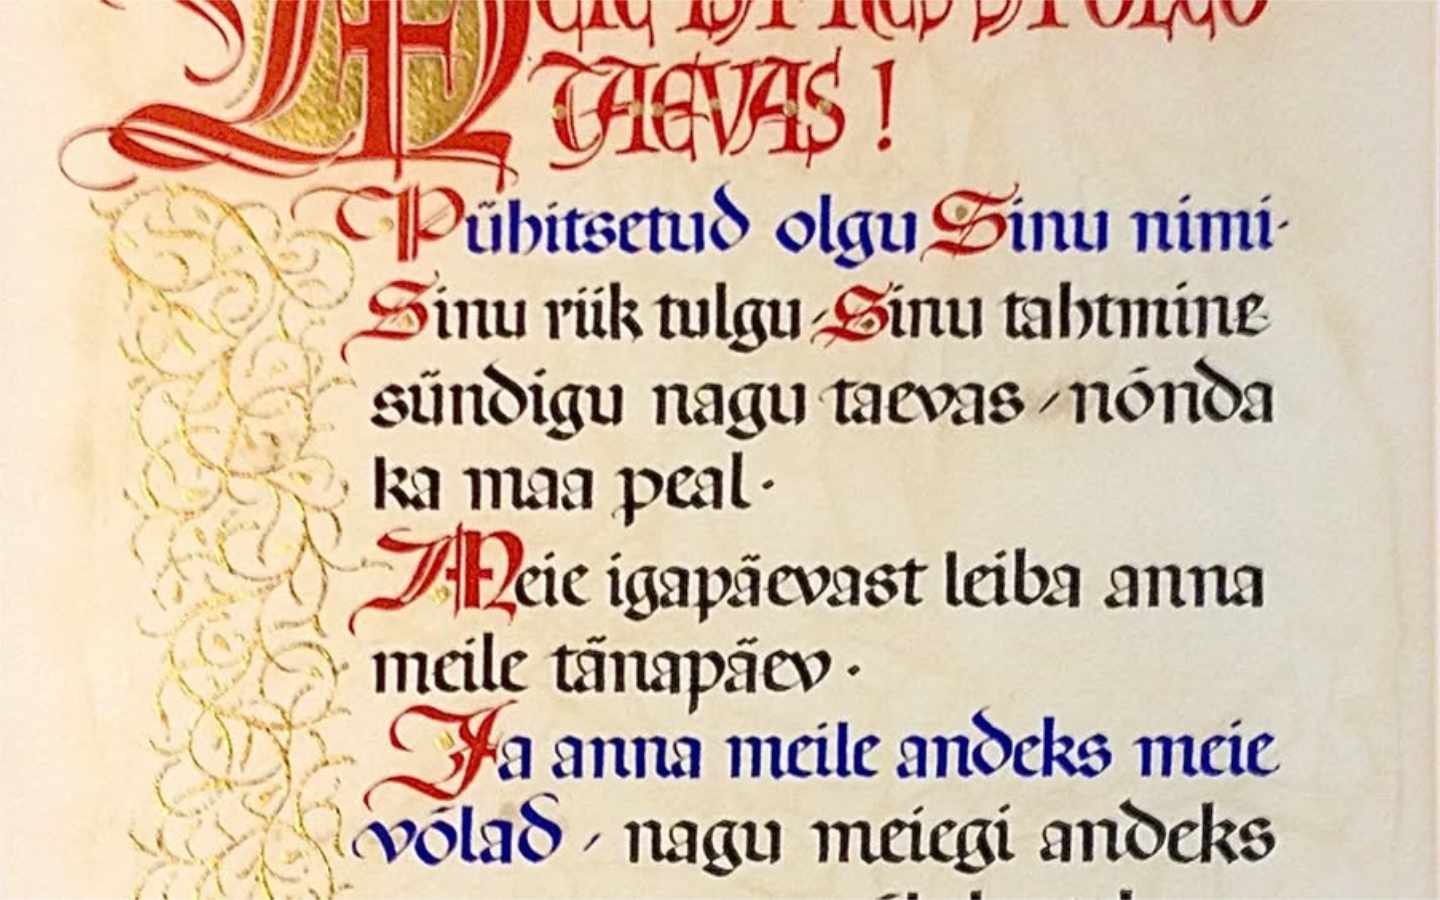 TAEVAS!
Pühitsetud olgu Sinu nimi·
Sinu riik tulgu, Sinu tahtmine
sündigu nagu taevas, nõnda
ka maa peal·
Meie igapäevast leiba anna
meile tänapäev·
Ja anna meile andeks meie
võlad, nagu meiegi andeks